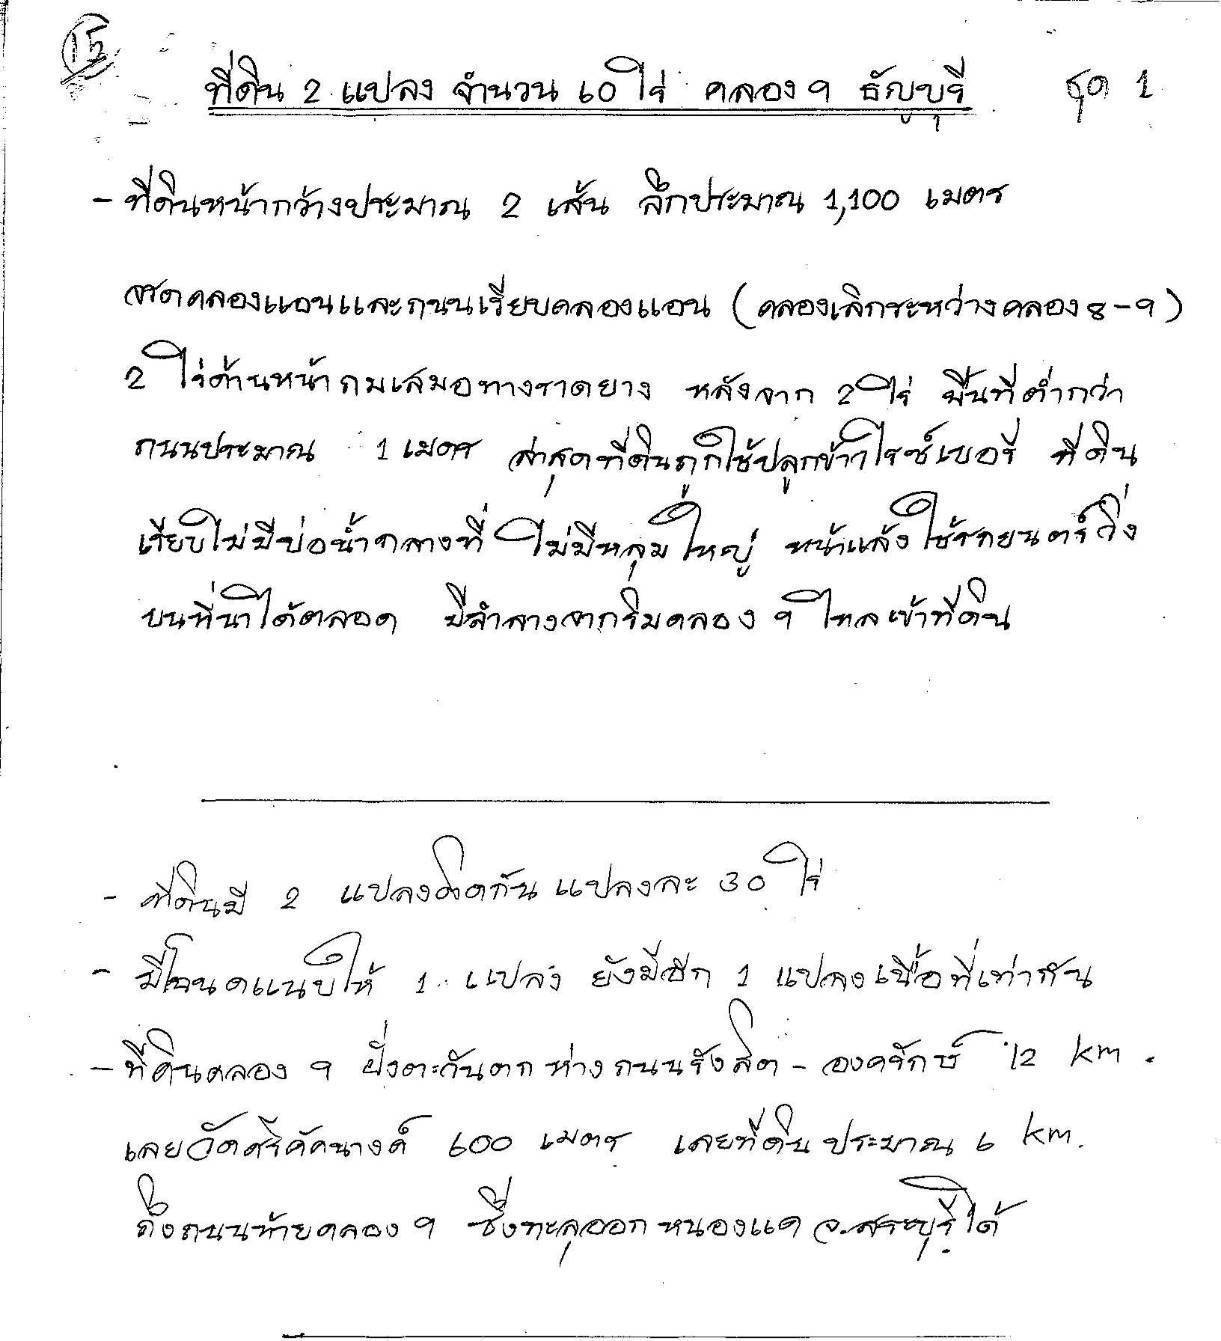 15
ที่ดิน 2 แปลง จำนวน 60 ไร่ คลอง 9 ธัญบุรี ชุด 1
- ที่ดินหน้ากว้างประมาณ 2 เส้น ลึกประมาณ 1,100 เมตร
จรดคลองแอนและถนนเรียบคลองแอน (คลองเลิกระหว่างคลอง 8-9)
2 ไร่ด้านหน้าถมเสมอทางราดยาง หลังจาก 2 ไร่ พื้นที่ต่ำกว่า
ถนนประมาณ 1 เมตร ล่าสุดที่ดินถูกใช้ปลูกข้าวไรซ์เบอรี่ ที่ดิน
เรียบไม่มีบ่อน้ำกลางที่ ไม่มีหลุมใหญ่ หน้าแล้งใช้รถยนต์วิ่ง
บนที่นาได้ตลอด มีลำลางจากริมคลอง 9 ไหลเข้าที่ดิน
- ที่ดินมี 2 แปลงติดกัน แปลงละ 30 ไร่
- มีโฉนดแนบให้ 1 แปลง ยังมีอีก 1 แปลงเนื้อที่เท่ากัน
- ที่ดินคลอง 9 ฝั่งตะวันตก ห่างถนนรังสิต - องครักษ์ 12 km.
เลยวัดศรีคัคนางค์ 600 เมตร เลยที่ดินประมาณ 6 km.
ถึงถนนท้ายคลอง 9 ซึ่งทะลุออกหนองแค จ.สระบุรีได้